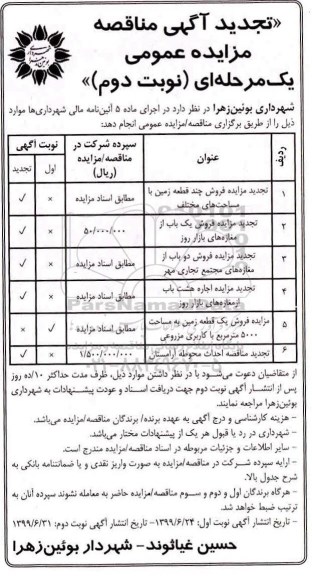 «تجدید آگهی مناقصه
مزایده عمومی
یک‌مرحله‌ای (نوبت دوم)»
شهرداری بوئین‌زهرا در نظر دارد در اجرای ماده ۵ آئین‌نامه مالی شهرداری‌ها موارد
ذیل را از طریق برگزاری مناقصه/مزایده عمومی انجام دهد:
ردیف | عنوان | سپرده شرکت در مناقصه/مزایده (ریال) | نوبت آگهی
اول | تجدید
۱ | تجدید مزایده فروش چند قطعه زمین با مساحت‌های مختلف | مطابق اسناد مزایده | × | ✓
۲ | تجدید مزایده فروش یک باب از مغازه‌های بازار روز | ۵۰/۰۰۰/۰۰۰ | × | ✓
۳ | تجدید مزایده فروش دو باب از مغازه‌های مجتمع تجاری مهر | مطابق اسناد مزایده | × | ✓
۴ | تجدید مزایده اجاره هشت باب ازمغازه‌های بازار روز | مطابق اسناد مزایده | × | ✓
۵ | مزایده فروش یک قطعه زمین به مساحت ۵۰۰۰ مترمربع با کاربری مزروعی | مطابق اسناد مزایده | ✓ | ×
۶ | تجدید مناقصه احداث محوطه آرامستان | ۱/۵۰۰/۰۰۰/۰۰۰ | × | ✓
از متقاضیان دعوت می‌شود با در نظر داشتن موارد ذیل، ظرف مدت حداکثر ۱۰/ده روز
پس از انتشار آگهی نوبت دوم جهت دریافت اسناد و عودت پیشنهادات به شهرداری
بوئین‌زهرا مراجعه نمایند.
- هزینه کارشناسی و درج آگهی به عهده برنده/ برندگان مناقصه/مزایده می‌باشد.
- شهرداری در رد یا قبول هر یک از پیشنهادات مختار می‌باشد.
- سایر اطلاعات و جزئیات مربوطه در اسناد مناقصه/مزایده مندرج است.
- ارایه سپرده شرکت در مناقصه/مزایده به صورت واریز نقدی و یا ضمانتنامه بانکی به
شرح جدول بالا.
- هرگاه برندگان اول و دوم و سوم مناقصه/مزایده حاضر به معامله نشوند سپرده آنان به
ترتیب ضبط خواهد شد.
- تاریخ انتشار آگهی نوبت اول: ۱۳۹۹/۶/۲۴- تاریخ انتشار آگهی نوبت دوم: ۱۳۹۹/۶/۳۱
حسین غیاثوند - شهردار بوئین‌زهرا